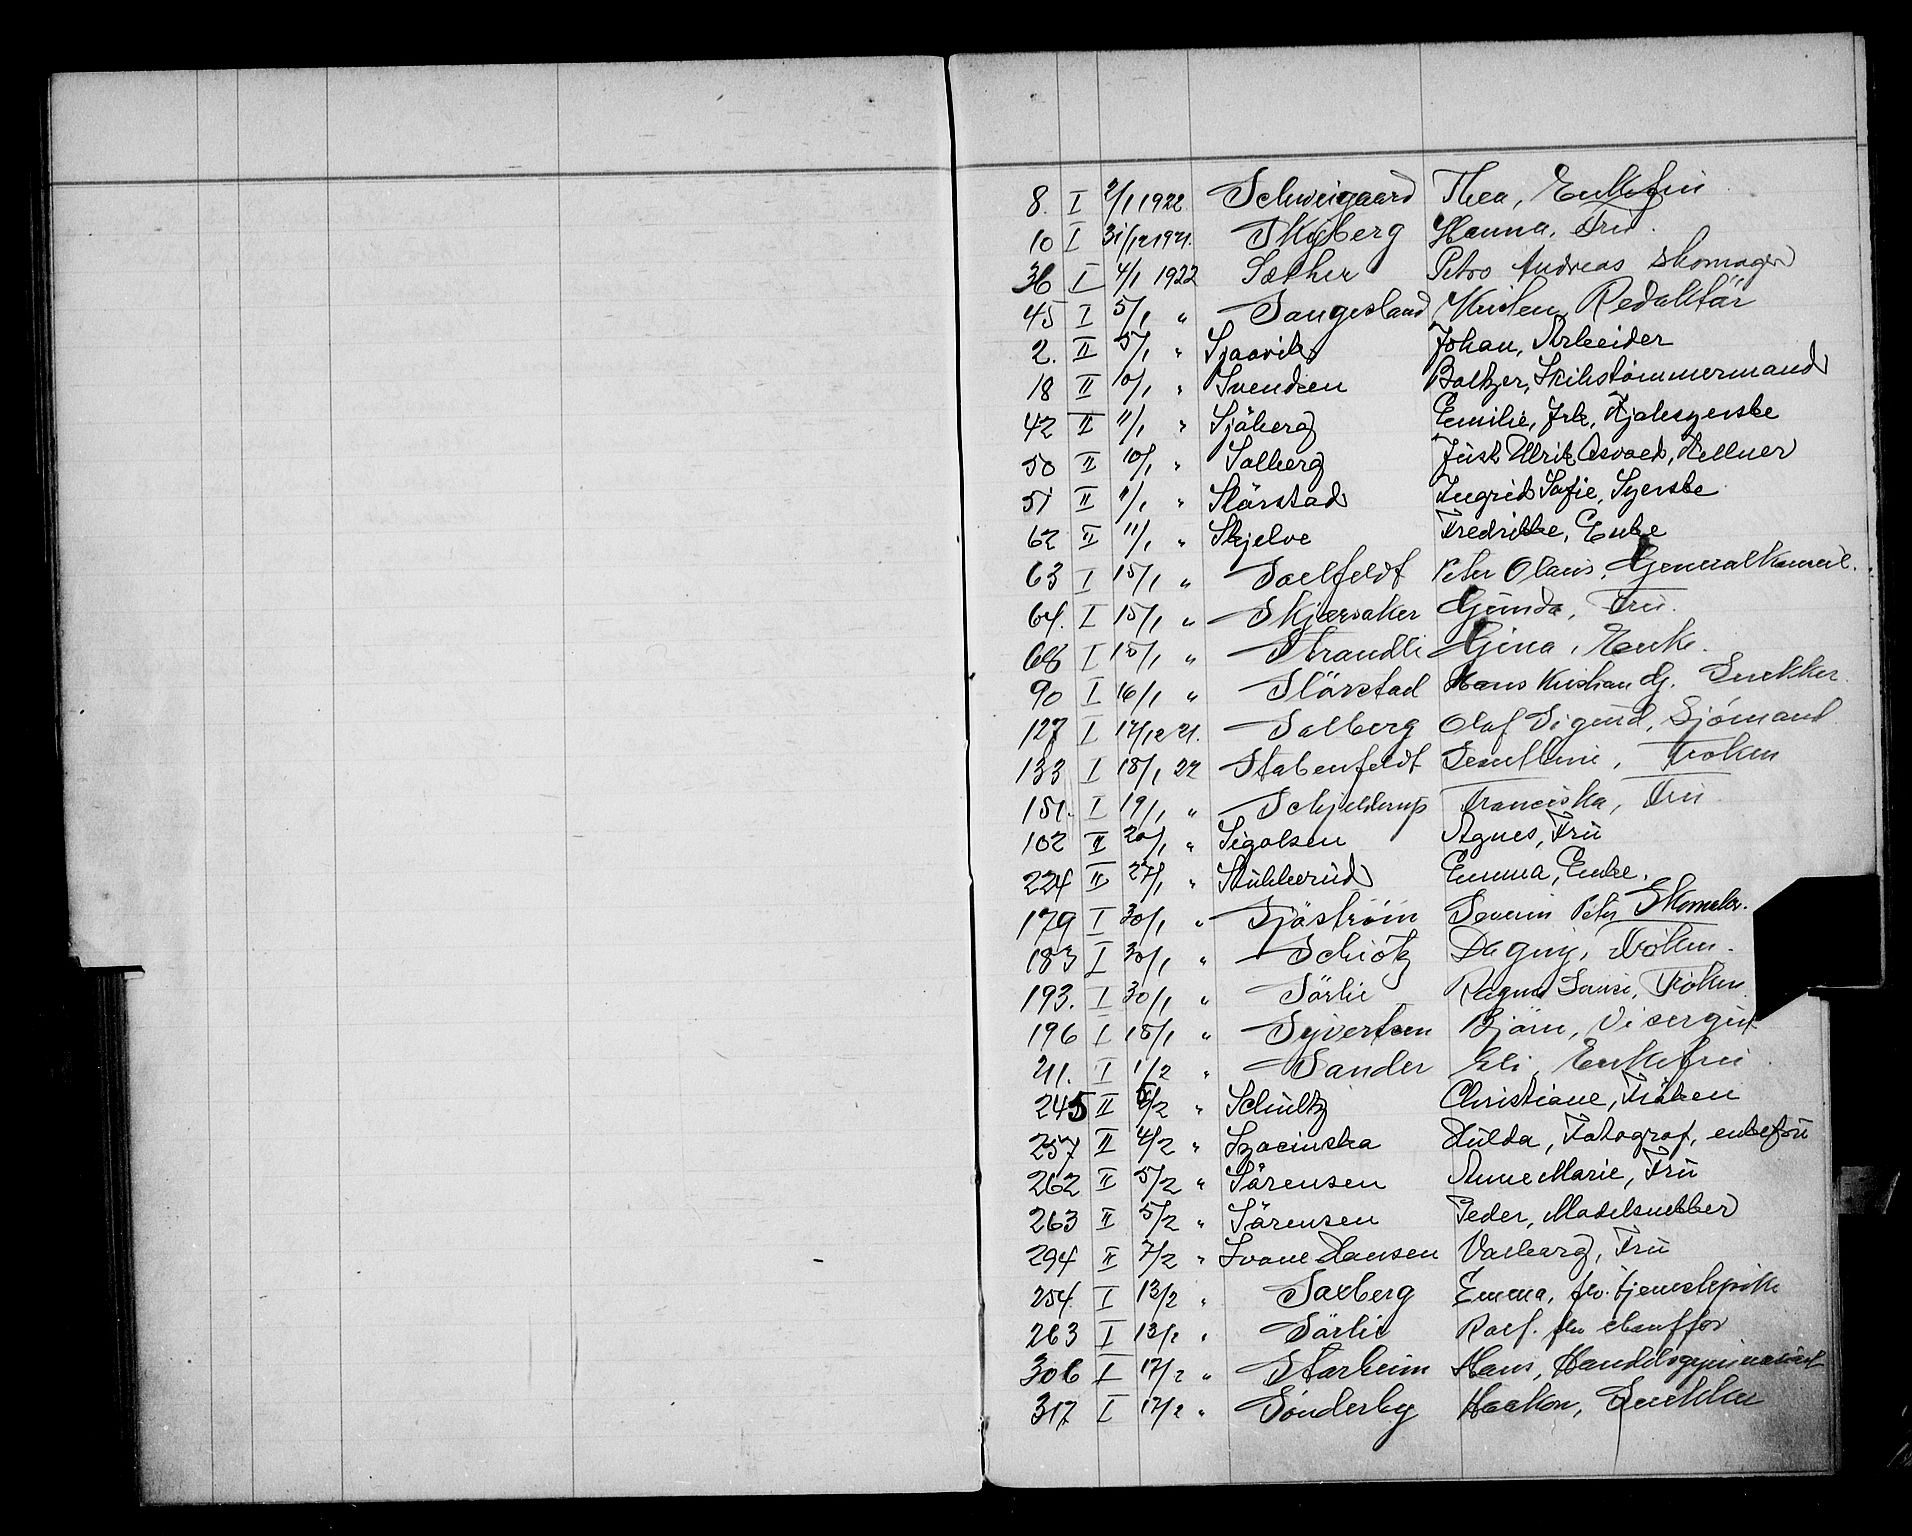 8. I 2/1 1922 Schweigaard Thea, Enkefru
10 I 31/12 1921. Skyberg Hanna, Fru.
36 I 4/1 1922 Sæther Petro Andreas Skomager
45 I 5/1 " Saugestad Kristen, Redaktör
2. II 5/1 " Sjaavik Johan, Arbeider
18 II 10/1 " Svendsen Baltzer, Skibstømmermand
42 II 11/1 " Sjöberg Emilie, frk, Kjolesyerske
50 II 10/1 " Solberg Just Ulrik, Kellner
51 II 11/1 " Slörstad Ingrid Sofie, Syerske
62 II 11/1 " Skjelve Fredrikke, Enke
63 I 15/1 " Saelfeldt Peter Olaus, Generalkonsul.
64. I 15/1 " Skjærsaker Gunda, Fru.
68 I 15/1 " Strandli Gina, Enke.
90 I 16/1 " Slörstad Hans Kristian G. Snekker.
127 I 17/12 21. Solberg Olaf Sigurd, Sjömand
133 I 18/1 22 Stabenfeldt Fröken
151. I 19/1 " Schjelderup Franciska, Fru
102 II 20/1 " Sigolsen Agnes, Fru
224 II 27/1 " Stubberud Emma, Enke.
179 I 30/1 " Sjöström Severin Peter
183 I 30/1 " Schiötz Dagny, Fröken.
193. I 30/1 " Sörlie Ragna Louise, Fröken
196 I 18/1 " Syvertsen Björn, Visergut
211. I 1/2 " Sander Eli, Enkefru
245 II 5/2 " Schultz Christiane, Fröken
257 II 4/2 " Szacinska Hulda, Fotograf, enkefru
262 II 5/2 " Sörensen Anne Marie, Fru
263 II 5/2 " Sörensen Peder, Modelsnekker
294 II 7/2 " Svane Hansen Valborg, Fru
254. I 13/2 " Saxberg Emma, fv. tjenestepike
263 I 13/2 " Sörlie Rolf. fhv chauffør
306 I 17/2 " Storheim Hans, Handelsgymnasiast
317 I 17/2 " Sönderby Haakon, Snekker